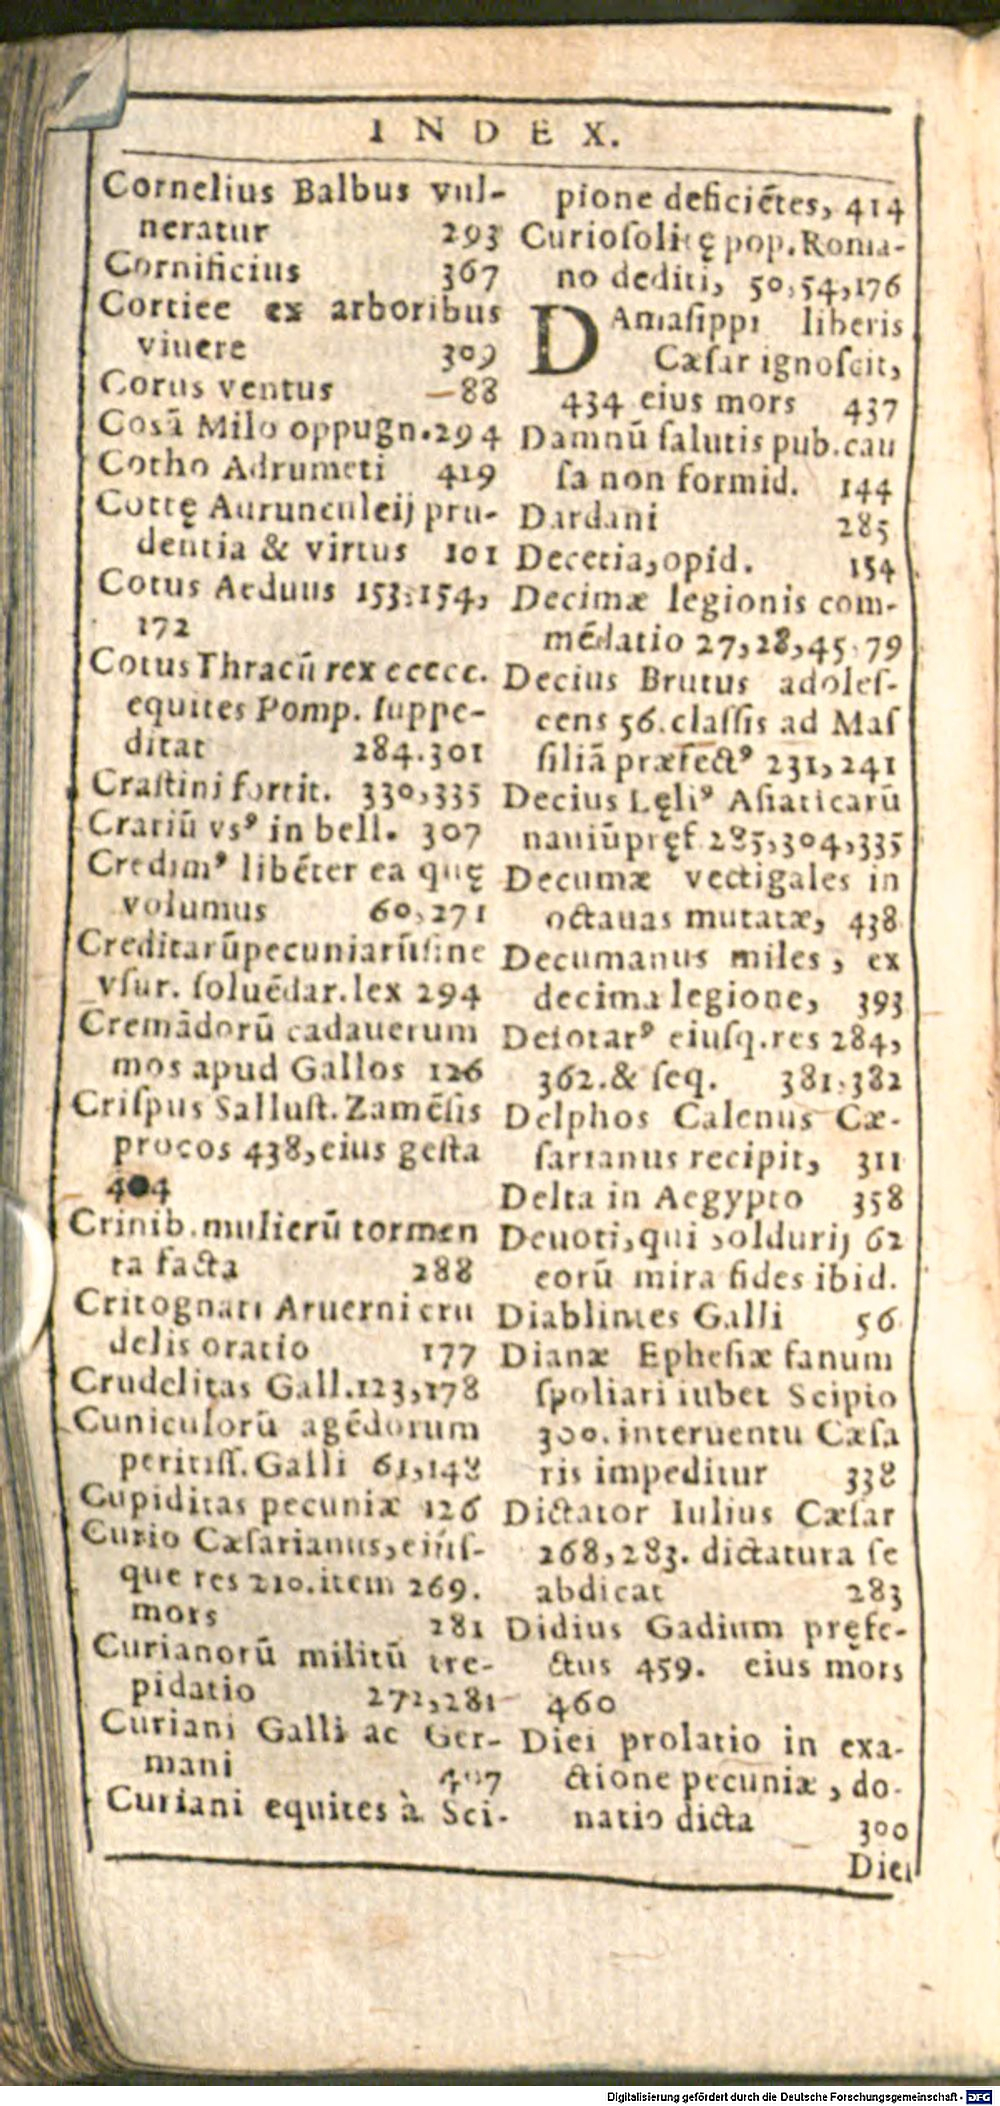 INDEX.
Cornelius Balbus vul-
neratur 293
Cornificius 367
Cortice ex arboribus
viuere 309
Corus ventus 88
Cosā Milo oppugn. 294
Cotho Adrumeti 419
Cottę Aurunculeij pru-
dentia & virtus 101
Cotus Aeduus 153. 154,
172
Cotus Thracū rex ccccc.
equites Pomp. ſuppe-
ditat 284. 301
Craſtini fortit. 330, 335
Cratiū vsꝰ in bell. 307
Credimꝰ libēter ea quę
volumus 60, 271
Creditarū pecuniarū ſine
vſur. ſoluēdar. lex 294
Cremādorū cadauerum
mos apud Gallos 126
Criſpus Salluſt. Zamēſis
procos 438, eius geſta
404
Crinib. mulierū tormen
ta facta 288
Critognati Aruerni cru
delis oratio 177
Crudelitas Gall. 123, 178
Cuniculorū agēdorum
peritiſſ. Galli 61, 148
Cupiditas pecuniæ 126
Curio Cæſarianus, eiuſ-
que res 210. item 269.
mors 281
Curianorū militū tre-
pidatio 272, 281
Curiani Galli ac Ger-
mani 407
Curiani equites à Sci-
pione deficiētes, 414
Curioſolitę pop. Roma-
no dediti, 50, 54, 176
DAmaſippi liberis
Cæſar ignoſcit,
434 eius mors 437
Damnū ſalutis pub. cau
ſa non formid. 144
Dardani 285
Decetia, opid. 154
Decimæ legionis com-
mēdatio 27, 28, 45. 79
Decius Brutus adoleſ-
cens 56. claſſis ad Maſ
ſiliā præfectꝰ 231, 241
Decius Lęliꝰ Aſiaticarū
nauiū pręf. 285, 304, 335
Decumæ vectigales in
octauas mutatæ, 438
Decumanus miles, ex
decima legione, 393
Deiotarꝰ eiuſq. res 284,
362. & ſeq. 381. 382
Delphos Calenus Cæ-
ſarianus recipit, 311
Delta in Aegypto 358
Deuoti, qui ſoldurij 62
eorū mira fides ibid.
Diablintes Galli 56
Dianæ Epheſiæ fanum
ſpoliari iubet Scipio
300. interuentu Cæſa
ris impeditur 338
Dictator Iulius Cæſar
268, 283. dictatura ſe
abdicat 283
Didius Gadium pręfe-
ctus 459. eius mors
460
Diei prolatio in exa-
ctione pecuniæ, do-
natio dicta 300
Diei
Digitalisierung gefördert durch die Deutsche Forschungsgemeinschaft - DFG